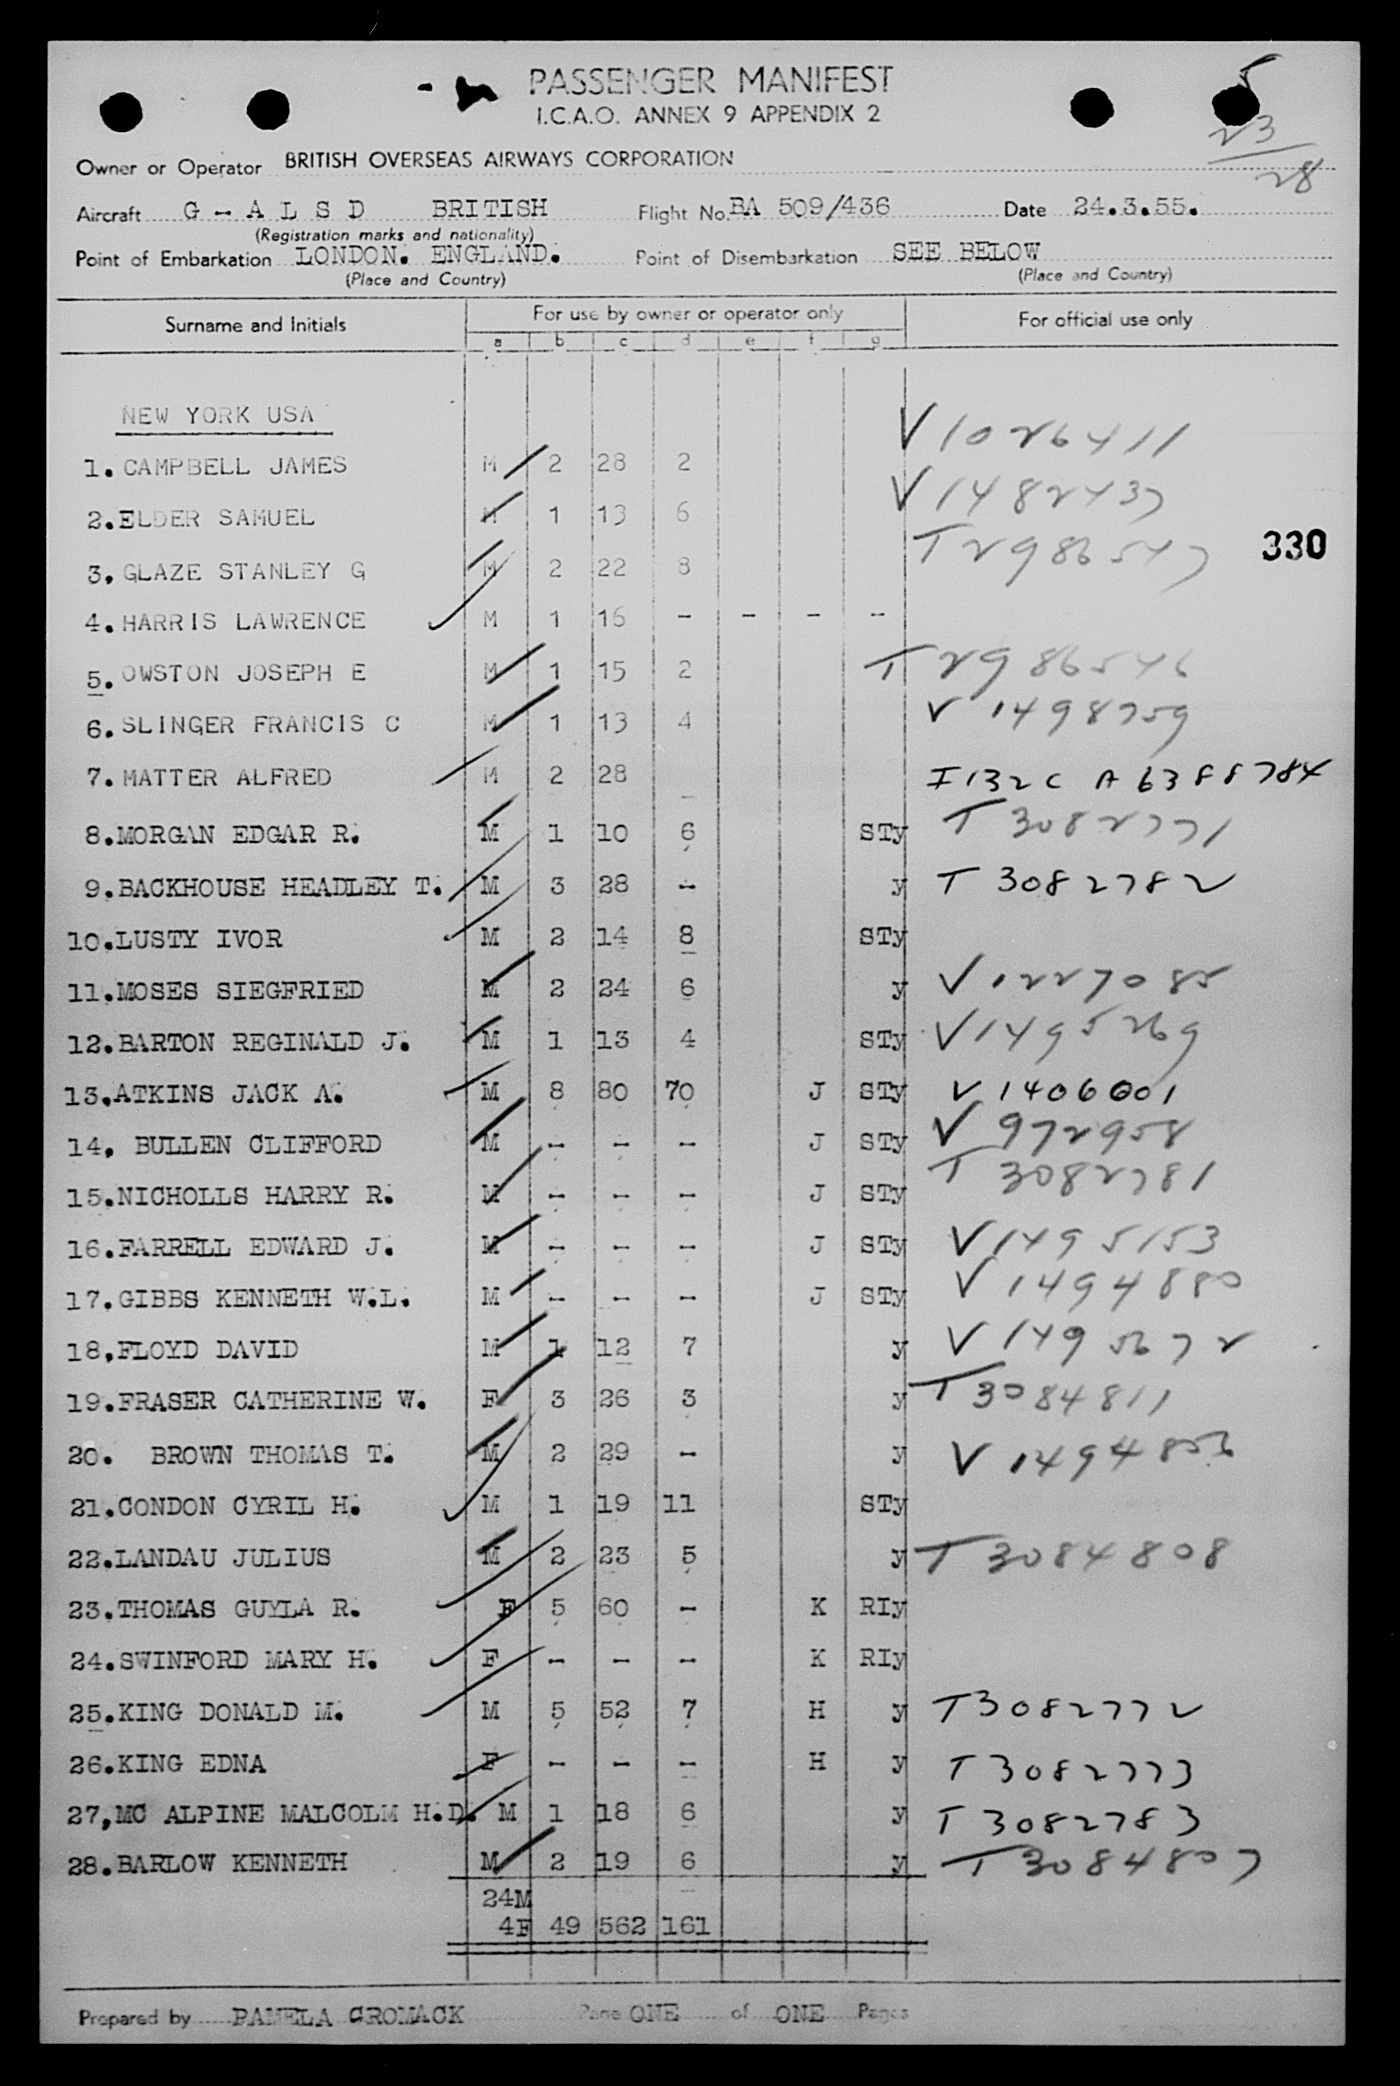 PASSENGER MANIFEST
I.C.A.O. ANNEX 9 APPENDIX 2
5
23
28
Owner or Operator BRITISH OVERSEAS AIRWAYS CORPORATION
Aircraft G - A L S D BRITISH Flight No. BA 509/436 Date 24.3.55.
(Registration marks and nationality)
Point of Embarkation LONDON. ENGLAND. Point of Disembarkation SEE BELOW
(Place and Country) (Place and Country)
Surname and Initials For use by owner or operator only For official use only
a b c d e f g
NEW YORK USA
1. CAMPBELL JAMES M 2 28 2 V1026411
2. ELDER SAMUEL M 1 13 6 V1482437
3, GLAZE STANLEY G M 2 22 8 T2986547
330
4. HARRIS LAWRENCE M 1 16 - - - -
5. OWSTON JOSEPH E M 1 15 2 T2986546
6. SLINGER FRANCIS C M 1 13 4 V1498759
7. MATTER ALFRED M 2 28 - I132C A6388784
8.MORGAN EDGAR R. M 1 10 6 STy T3082771
9.BACKHOUSE HEADLEY T. M 3 28 - y T3082782
10.LUSTY IVOR M 2 14 8 STy
11.MOSES SIEGFRIED M 2 24 6 y V1227085
12.BARTON REGINALD J. M 1 13 4 STy V1495269
13,ATKINS JACK A. M 8 80 70 J STy V1406001
14, BULLEN CLIFFORD M - - - J STy V972958
15.NICHOLLS HARRY R. M - - - J STy T3082781
16.FARRELL EDWARD J. M - - - J STy V1495153
17.GIBBS KENNETH W.L. M - - - J STy V1494880
18,FLOYD DAVID M 1 12 7 y V1495672
19.FRASER CATHERINE W. F 3 26 3 y T3084811
20. BROWN THOMAS T. M 2 29 - y V1494853
21.CONDON CYRIL H. M 1 19 11 STy
22.LANDAU JULIUS M 2 23 5 y T3084808
23.THOMAS GUYLA R. F 5 60 - K RIy
24.SWINFORD MARY H. F - - - K RIy
25.KING DONALD M. M 5 52 7 H y T3082772
26.KING EDNA F - - - H y T3082773
27,MC ALPINE MALCOLM H.D. M 1 18 6 y T3082783
28.BARLOW KENNETH M 2 19 6 y T3084807
24M
4F 49 562 161
Prepared by PAMELA CROMACK Page ONE of ONE Pages